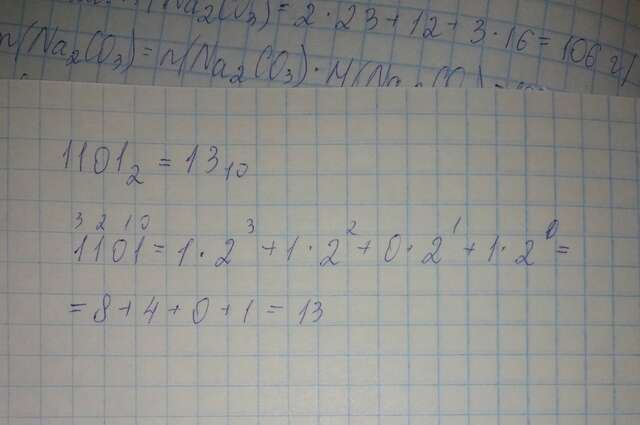 (Na₂CO₃) = 2·23+12+3·16 = 106 г/
m(Na₂CO₃) = n(Na₂CO₃)·M(Na₂CO₃) =
1101₂ = 13₁₀
3 2 1 0
1101 = 1·2³ + 1·2² + 0·2¹ + 1·2⁰ =
= 8+4+0+1 = 13